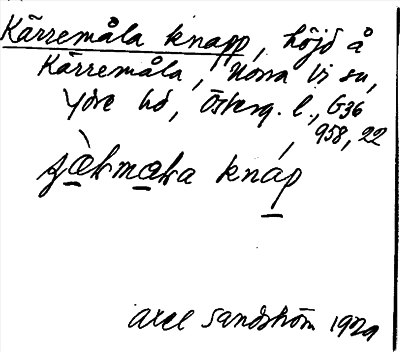 Kärremåla knapp, höjd å
Kärremåla, Norra Vi sn,
Ydre hd, Österg. l., G36
958, 22
knáp
Axel Sandström 1929